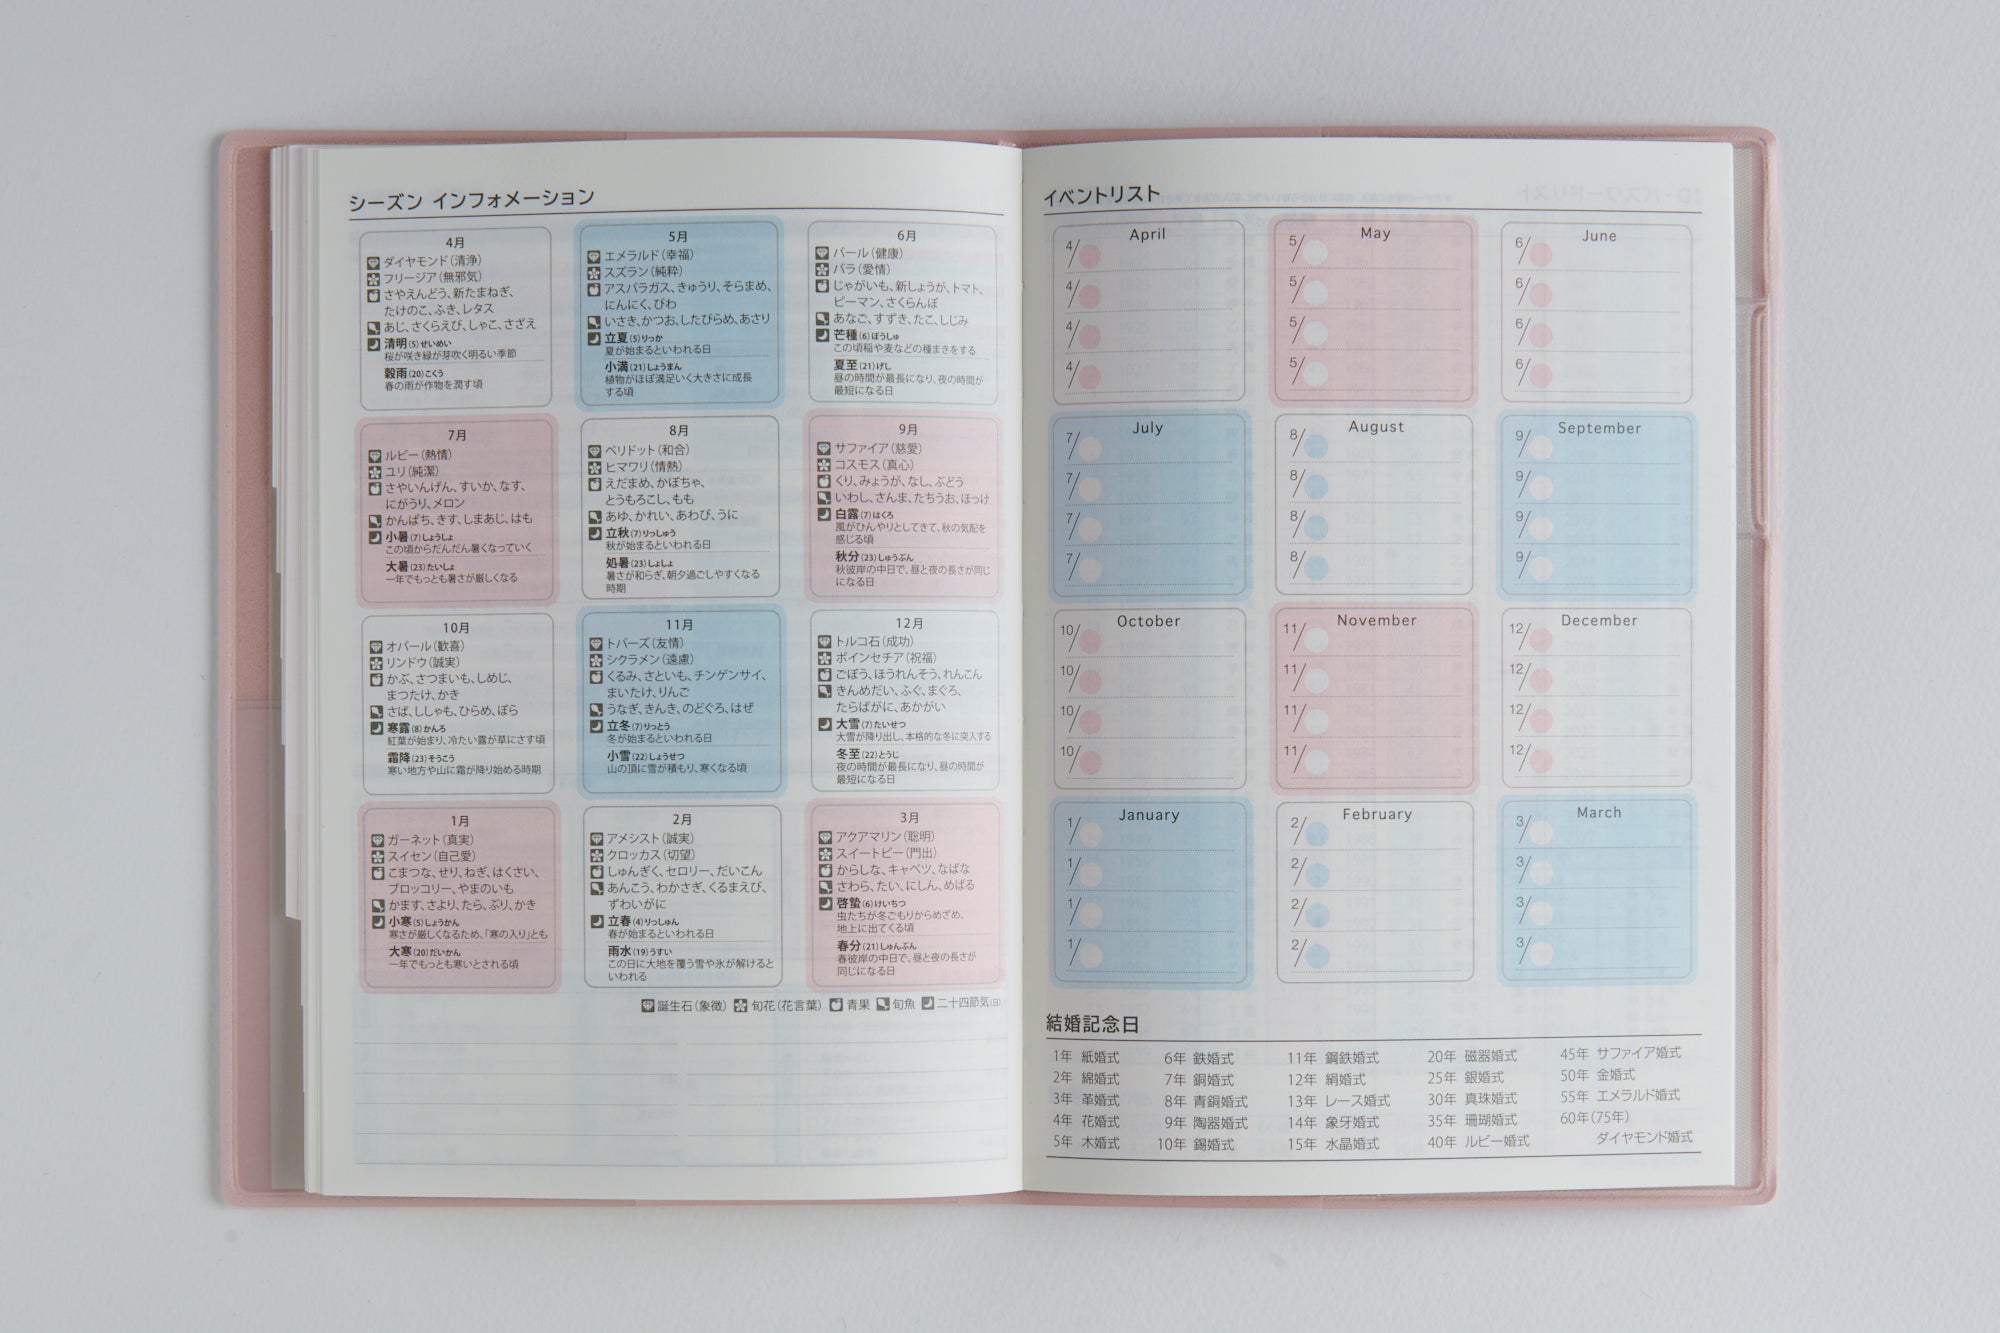 シーズン インフォメーション
4月
ダイヤモンド（清浄）
フリージア（無邪気）
さやえんどう、新たまねぎ、
たけのこ、ふき、レタス
あじ、さくらえび、しゃこ、さざえ
清明(5)せいめい
桜が咲き緑が芽吹く明るい季節
穀雨(20)こくう
春の雨が作物を潤す頃
5月
エメラルド（幸福）
スズラン（純粋）
アスパラガス、きゅうり、そらまめ、
にんにく、びわ
いさき、かつお、したびらめ、あさり
立夏(5)りっか
夏が始まるといわれる日
小満(21)しょうまん
植物がほぼ満足いく大きさに成長
する頃
6月
パール（健康）
バラ（愛情）
じゃがいも、新しょうが、トマト、
ピーマン、さくらんぼ
あなご、すずき、たこ、しじみ
芒種(6)ぼうしゅ
この頃稲や麦などの種まきをする
夏至(21)げし
昼の時間が最長になり、夜の時間が
最短になる日
7月
ルビー（熱情）
ユリ（純潔）
さやいんげん、すいか、なす、
にがうり、メロン
かんぱち、きす、しまあじ、はも
小暑(7)しょうしょ
この頃からだんだん暑くなっていく
大暑(23)たいしょ
一年でもっとも暑さが厳しくなる
8月
ペリドット（和合）
ヒマワリ（情熱）
えだまめ、かぼちゃ、
とうもろこし、もも
あゆ、かれい、あわび、うに
立秋(7)りっしゅう
秋が始まるといわれる日
処暑(23)しょしょ
暑さが和らぎ、朝夕過ごしやすくなる
時期
9月
サファイア（慈愛）
コスモス（真心）
くり、みょうが、なし、ぶどう
いわし、さんま、たちうお、ほっけ
白露(7)はくろ
風がひんやりとしてきて、秋の気配を
感じる頃
秋分(23)しゅうぶん
秋彼岸の中日で、昼と夜の長さが同じ
になる日
10月
オパール（歓喜）
リンドウ（誠実）
かぶ、さつまいも、しめじ、
まつたけ、かき
さば、ししゃも、ひらめ、ぼら
寒露(8)かんろ
紅葉が始まり、冷たい露が草にさす頃
霜降(23)そうこう
寒い地方や山に霜が降り始める時期
11月
トパーズ（友情）
シクラメン（遠慮）
くるみ、さといも、チンゲンサイ、
まいたけ、りんご
うなぎ、きんき、のどぐろ、はぜ
立冬(7)りっとう
冬が始まるといわれる日
小雪(22)しょうせつ
山の頂に雪が積もり、寒くなる頃
12月
トルコ石（成功）
ポインセチア（祝福）
ごぼう、ほうれんそう、れんこん
きんめだい、ふぐ、まぐろ、
たらばがに、あかがい
大雪(7)たいせつ
大雪が降り出し、本格的な冬に突入する
冬至(22)とうじ
夜の時間が最長になり、昼の時間が
最短になる日
1月
ガーネット（真実）
スイセン（自己愛）
こまつな、せり、ねぎ、はくさい、
ブロッコリー、やまのいも
かます、さより、たら、ぶり、かき
小寒(5)しょうかん
寒さが厳しくなるため、「寒の入り」とも
大寒(20)だいかん
一年でもっとも寒いとされる頃
2月
アメシスト（誠実）
クロッカス（切望）
しゅんぎく、セロリー、だいこん
あんこう、わかさぎ、くるまえび、
ずわいがに
立春(4)りっしゅん
春が始まるといわれる日
雨水(19)うすい
この日に大地を覆う雪や氷が解けると
いわれる
3月
アクアマリン（聡明）
スイートピー（門出）
からしな、キャベツ、なばな
さわら、たい、にしん、めばる
啓蟄(6)けいちつ
虫たちが冬ごもりからめざめ、
地上に出てくる頃
春分(21)しゅんぶん
春彼岸の中日で、昼と夜の長さが
同じになる日
誕生石（象徴） 旬花（花言葉） 青果 旬魚 二十四節気(日)
イベントリスト
April
4/
4/
4/
4/
May
5/
5/
5/
5/
June
6/
6/
6/
6/
July
7/
7/
7/
7/
August
8/
8/
8/
8/
September
9/
9/
9/
9/
October
10/
10/
10/
10/
November
11/
11/
11/
11/
December
12/
12/
12/
12/
January
1/
1/
1/
1/
February
2/
2/
2/
2/
March
3/
3/
3/
3/
結婚記念日
1年 紙婚式
2年 綿婚式
3年 革婚式
4年 花婚式
5年 木婚式
6年 鉄婚式
7年 銅婚式
8年 青銅婚式
9年 陶器婚式
10年 錫婚式
11年 鋼鉄婚式
12年 絹婚式
13年 レース婚式
14年 象牙婚式
15年 水晶婚式
20年 磁器婚式
25年 銀婚式
30年 真珠婚式
35年 珊瑚婚式
40年 ルビー婚式
45年 サファイア婚式
50年 金婚式
55年 エメラルド婚式
60年（75年）
ダイヤモンド婚式